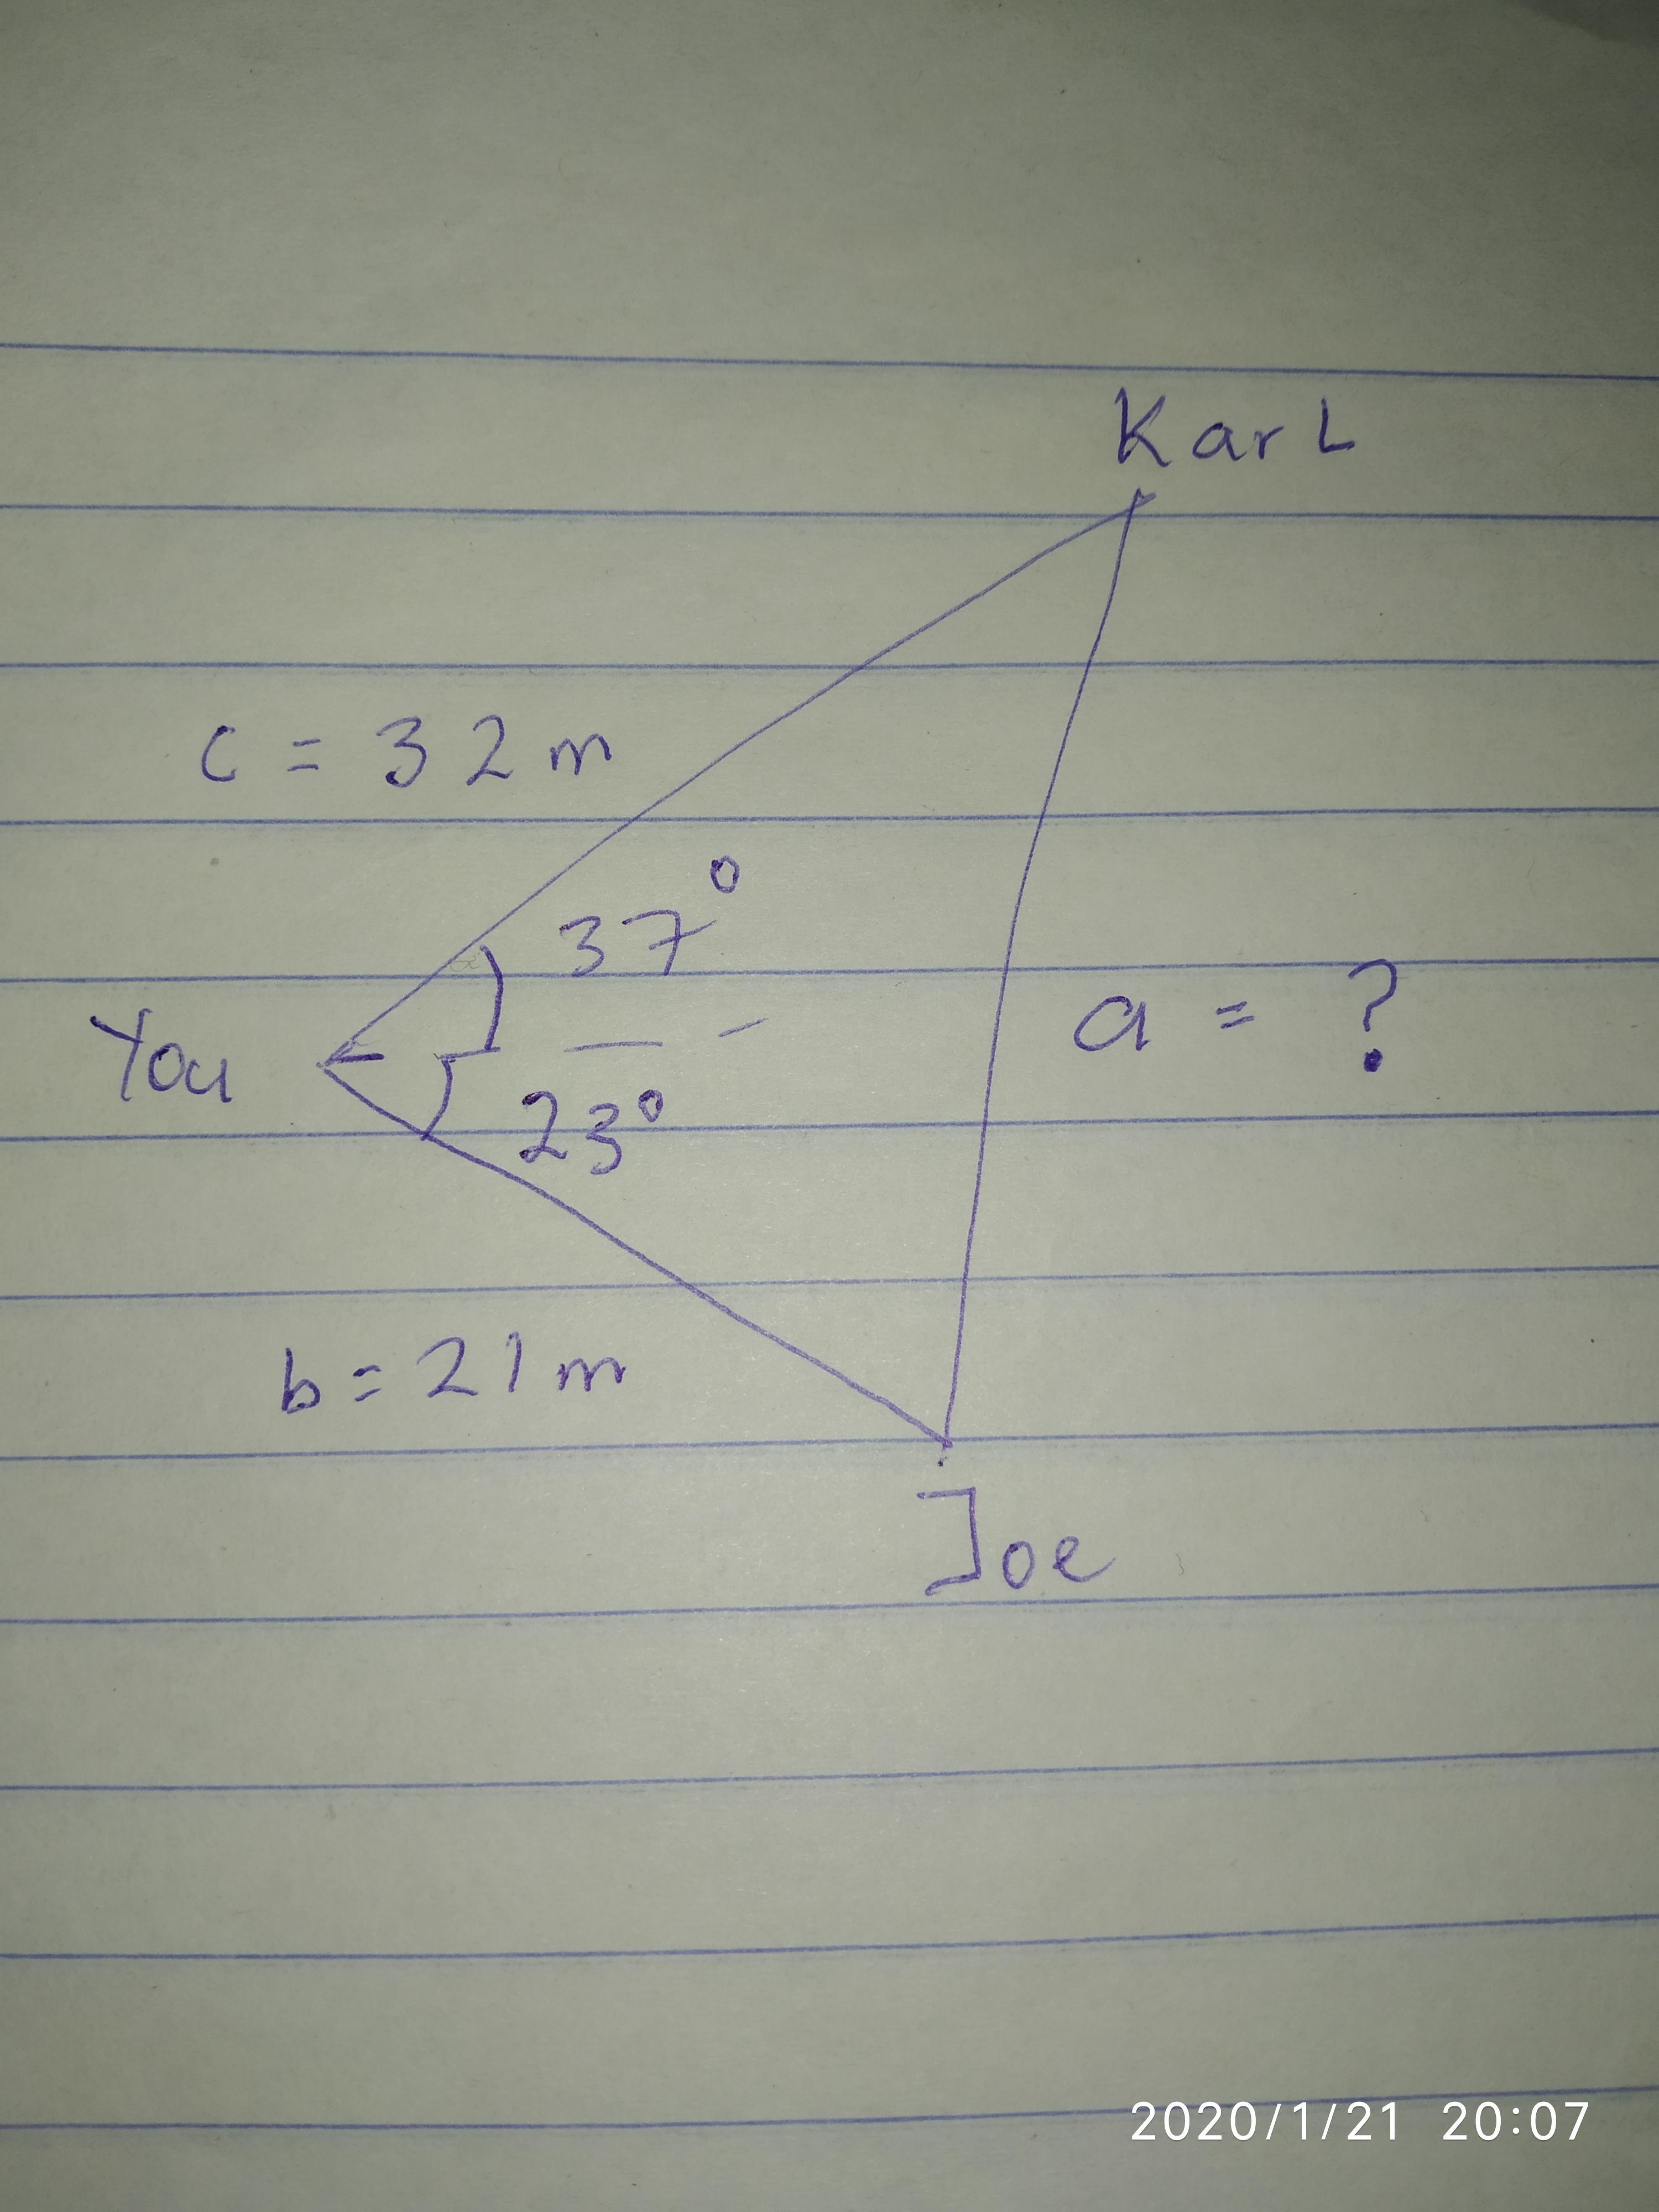 KarL
c = 32 m
37°
You
a = ?
23°
b = 21 m
Joe
2020/1/21 20:07